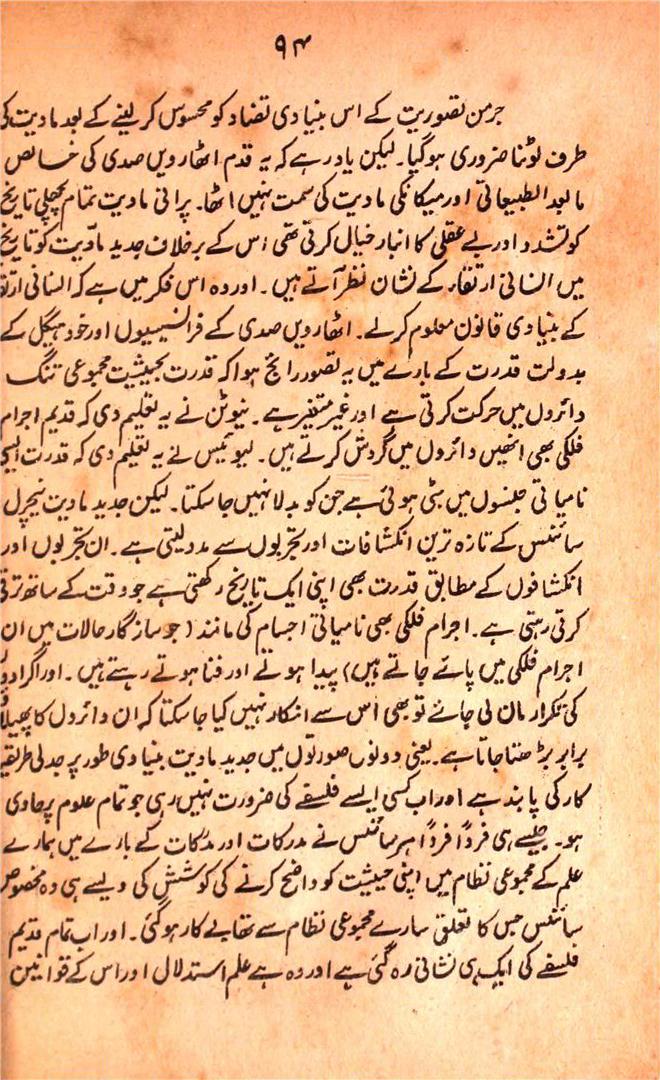 ۹۴
جرمن تصوریت کے اس بنیادی تضاد کو محسوس کر لینے کے بعد مادیت کی
طرف لوٹنا ضروری ہوگیا۔ لیکن یاد رہے کہ یہ قدم اٹھارویں صدی کی خالص
مابعد الطبیعاتی اور میکانکی مادیت کی سمت نہیں اٹھا۔ پرانی مادیت تمام پچھلی تاریخ
کو تشدد اور بے عقلی کا انبار خیال کرتی تھی اس کے برخلاف جدید مادّیت کو تاریخ
میں انسانی ارتقار کے نشان نظر آتے ہیں۔ اور وہ اس فکر میں ہے کہ انسانی ارتقا
کے بنیادی قانون معلوم کرلے۔ اٹھارویں صدی کے فرانسیسیوں اور خود ہیگل کے
بدولت قدرت کے بارے میں یہ تصور رائج ہوا کہ قدرت بحیثیت مجموعی تنگ
دائروں میں حرکت کرتی ہے اور غیر متغیر ہے۔ نیوٹن نے یہ تعلیم دی کہ قدیم اجرام
فلکی بھی انھیں دائروں میں گردش کرتے ہیں۔ لیو نیئس نے یہ تعلیم دی کہ قدرت ایسی
نامیاتی جنسوں میں بٹی ہوئی ہے جن کو بدلا نہیں جاسکتا۔ لیکن جدید مادیت نیچرل
سائنس کے تازہ ترین انکشافات اور تجربوں سے مدد لیتی ہے۔ ان تجربوں اور
انکشافوں کے مطابق قدرت بھی اپنی ایک تاریخ رکھتی ہے جو وقت کے ساتھ ترقی
کرتی رہتی ہے۔ اجرام فلکی بھی نامیاتی اجسام کی مانند (جو سازگار حالات میں ان
اجرام فلکی میں پائے جاتے ہیں) پیدا ہوتے اور فنا ہوتے رہتے ہیں۔ اور اگر
کی تکرار مان لی جائے تو بھی اس سے انکار نہیں کیا جاسکتا کہ ان دائروں کا پھیلاؤ
برابر بڑھتا جاتا ہے۔ یعنی دونوں صورتوں میں جدید مادیت بنیادی طور پر جدلی طریقے
کار کی پابند ہے اور اب کسی ایسے فلسفے کی ضرورت نہیں رہی جو تمام علوم پر حاوی
ہو۔ جیسے ہی فرداً فرداً ہر سائنس نے مدرکات اور مدرکات کے بارے میں ہمارے
علم کے مجموعی نظام میں اپنی حیثیت کو واضح کرنے کی کوشش کی ویسے ہی وہ مخصوص
سائنس جس کا تعلق سارے مجموعی نظام سے تھا بے کار ہوگئی۔ اور اب تمام قدیم
فلسفے کی ایک ہی نشانی رہ گئی ہے اور وہ ہے علم استدلال اور اس کے قوانین